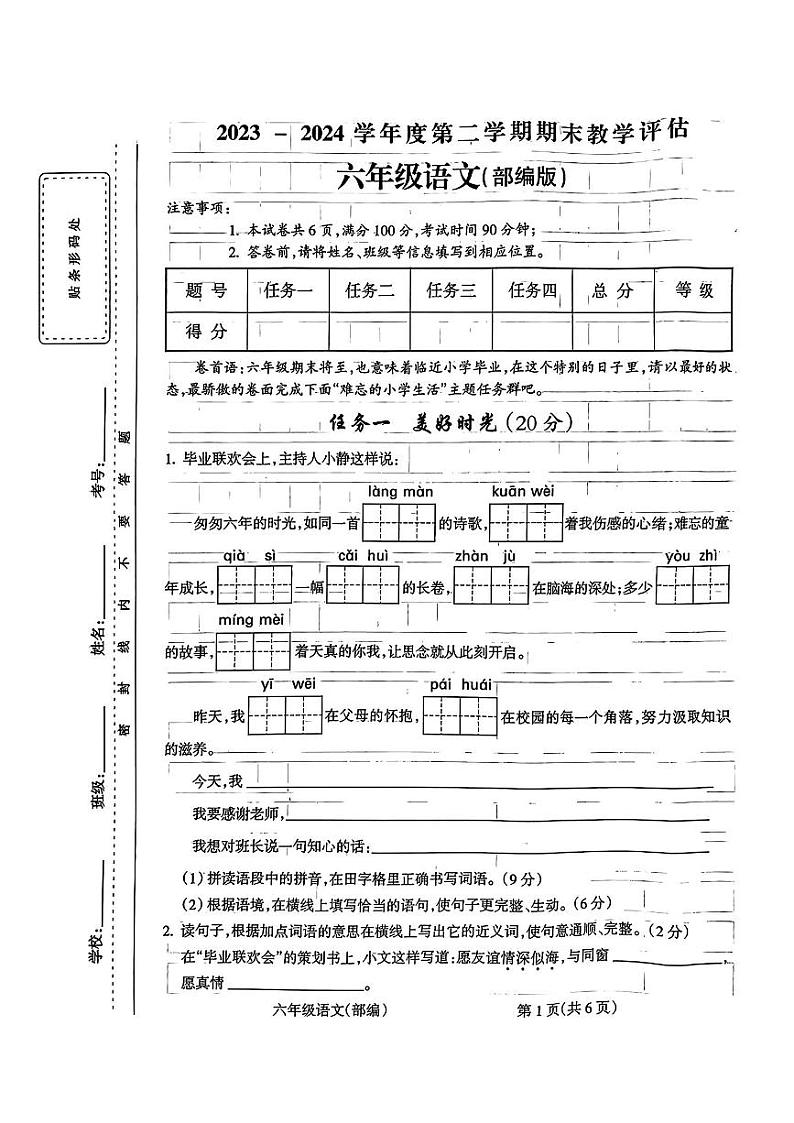 2023 - 2024 学年度第二学期期末教学评估
六年级语文(部编版)
注意事项:
1. 本试卷共 6 页,满分 100 分,考试时间 90 分钟;
2. 答卷前,请将姓名、班级等信息填写到相应位置。
题 号 任务一 任务二 任务三 任务四 总 分 等 级
得 分
卷首语:六年级期末将至,也意味着临近小学毕业,在这个特别的日子里,请以最好的状
态,最骄傲的卷面完成下面“难忘的小学生活”主题任务群吧。
任务一 美好时光(20 分)
1. 毕业联欢会上,主持人小静这样说:
làng màn kuān wèi
匆匆六年的时光,如同一首 的诗歌, 着我伤感的心绪;难忘的童
qià sì cǎi huì zhàn jù yòu zhì
年成长, 一幅 的长卷, 在脑海的深处;多少
míng mèi
的故事, 着天真的你我,让思念就从此刻开启。
yī wēi pái huái
昨天,我 在父母的怀抱, 在校园的每一个角落,努力汲取知识
的滋养。
今天,我
我要感谢老师,
我想对班长说一句知心的话:
(1)拼读语段中的拼音,在田字格里正确书写词语。(9 分)
(2)根据语境,在横线上填写恰当的语句,使句子更完整、生动。(6 分)
2. 读句子,根据加点词语的意思在横线上写出它的近义词,使句意通顺、完整。(2 分)
在“毕业联欢会”的策划书上,小文这样写道:愿友谊情深似海,与同窗 ,
愿真情 。
六年级语文(部编) 第 1 页(共 6 页)
贴条形码处
学校: 班级: 姓名: 考号:
密 封 线 内 不 要 答 题